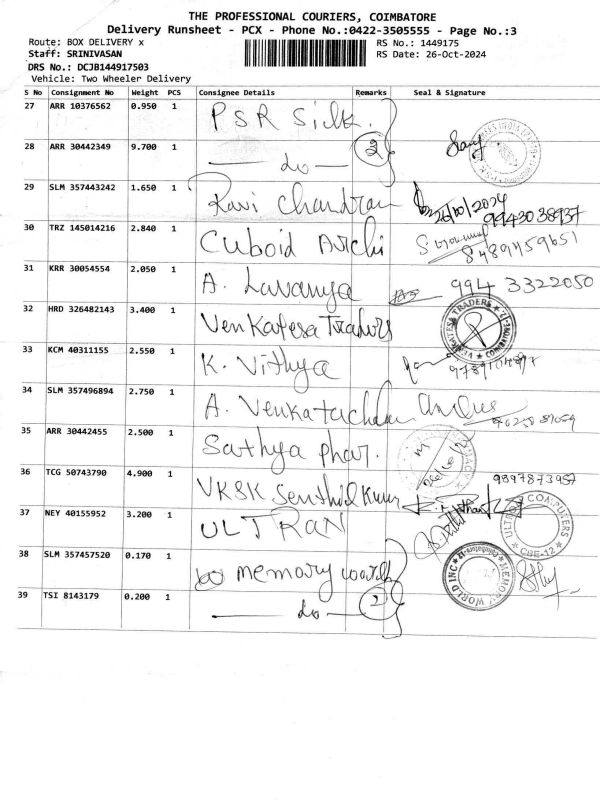 THE PROFESSIONAL COURIERS, COIMBATORE
Delivery Runsheet - PCX - Phone No.:0422-3505555 - Page No.:3
Route: BOX DELIVERY x
RS No.: 1449175
Staff: SRINIVASAN
RS Date: 26-Oct-2024
DRS No.: DCJB144917503
Vehicle: Two Wheeler Delivery
S No Consignment No Weight PCS Consignee Details Remarks Seal & Signature
27 ARR 10376562 0.950 1 PSR Silk.
28 ARR 30442349 9.700 1 — do — 2
29 SLM 357443242 1.650 1 Ravi Chandran 26/10/2024
9943038937
30 TRZ 145014216 2.840 1 Cuboid Archi
8489459651
31 KRR 30054554 2.050 1 A. Lavanya 994 3322050
32 HRD 326482143 3.400 1 Venkatesa Traders VENKATESA TRADERS
33 KCM 40311155 2.550 1 K. Vithya
34 SLM 357496894 2.750 1 A. Venkatachalam
35 ARR 30442455 2.500 1 Sathya phar.
36 TCG 50743790 4.900 1 VKSK Senthil Kumar
37 NEY 40155952 3.200 1 ULTRAN ULTRAN COMPUTERS
CBE-12
38 SLM 357457520 0.170 1 memory world MEMORY WORLD INC Coimbatore-12
39 TSI 8143179 0.200 1 — do — 2